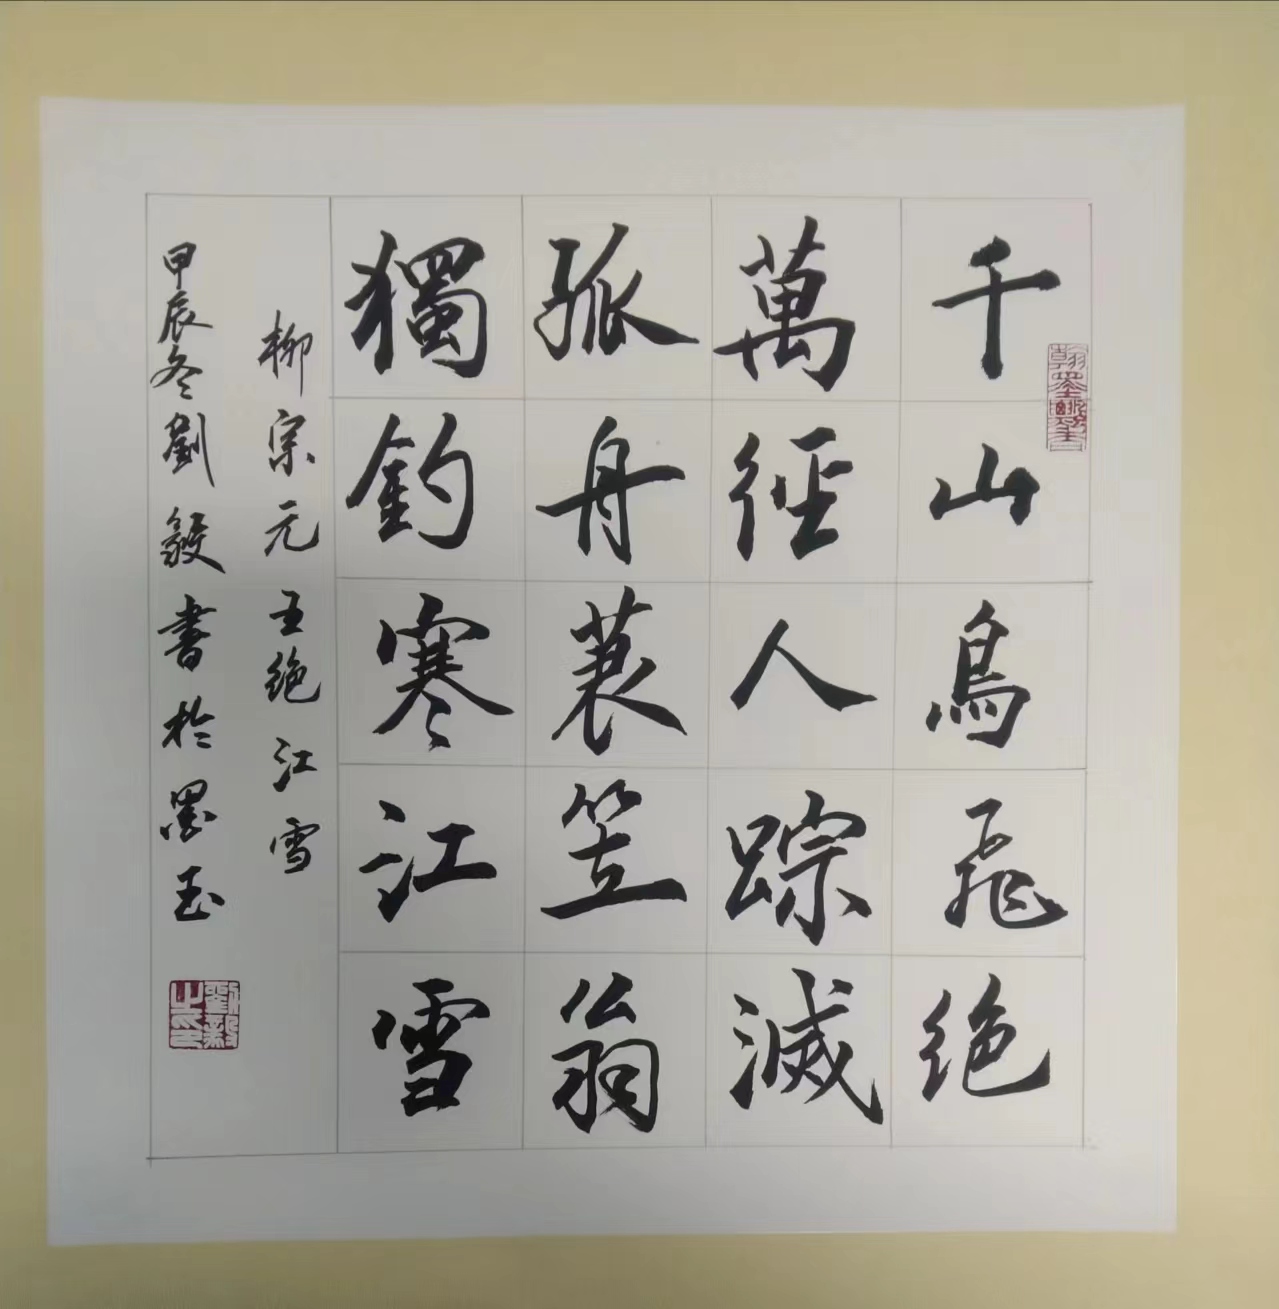 千山鳥飛绝
萬徑人踪滅
孤舟蓑笠翁
獨釣寒江雪
柳宗元五绝江雪
甲辰冬劉毅書於墨玉
劉毅之印